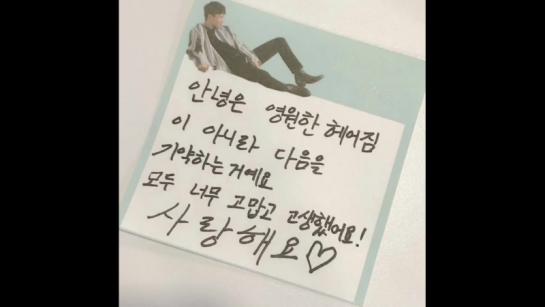 안녕은 영원한 헤어짐
이 아니라 다음을
기약하는거예요
모두 너무 고맙고 고생했어요!
사랑해요♡